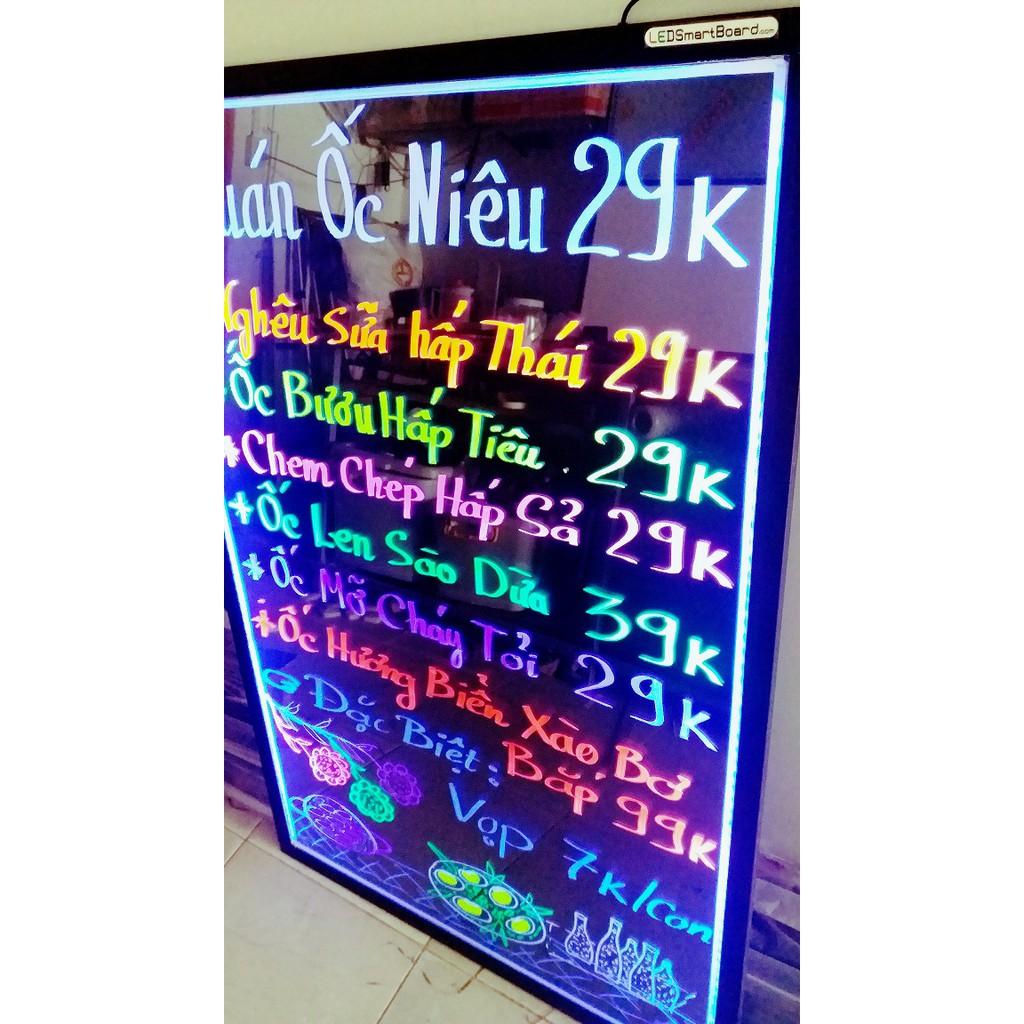 LEDSmartBoard.com
uán Ốc Niêu 29K
Nghêu Sữa hấp Thái 29K
Ốc Bươu Hấp Tiêu . 29K
* Chem Chép Hấp Sả 29K
* Ốc Len Sào Dừa 39K
* Ốc Mỡ Cháy Tỏi 29K
* Ốc Hương Biển Xào Bơ
Bắp 99K
Đặc Biệt :
Vọp 7K/con